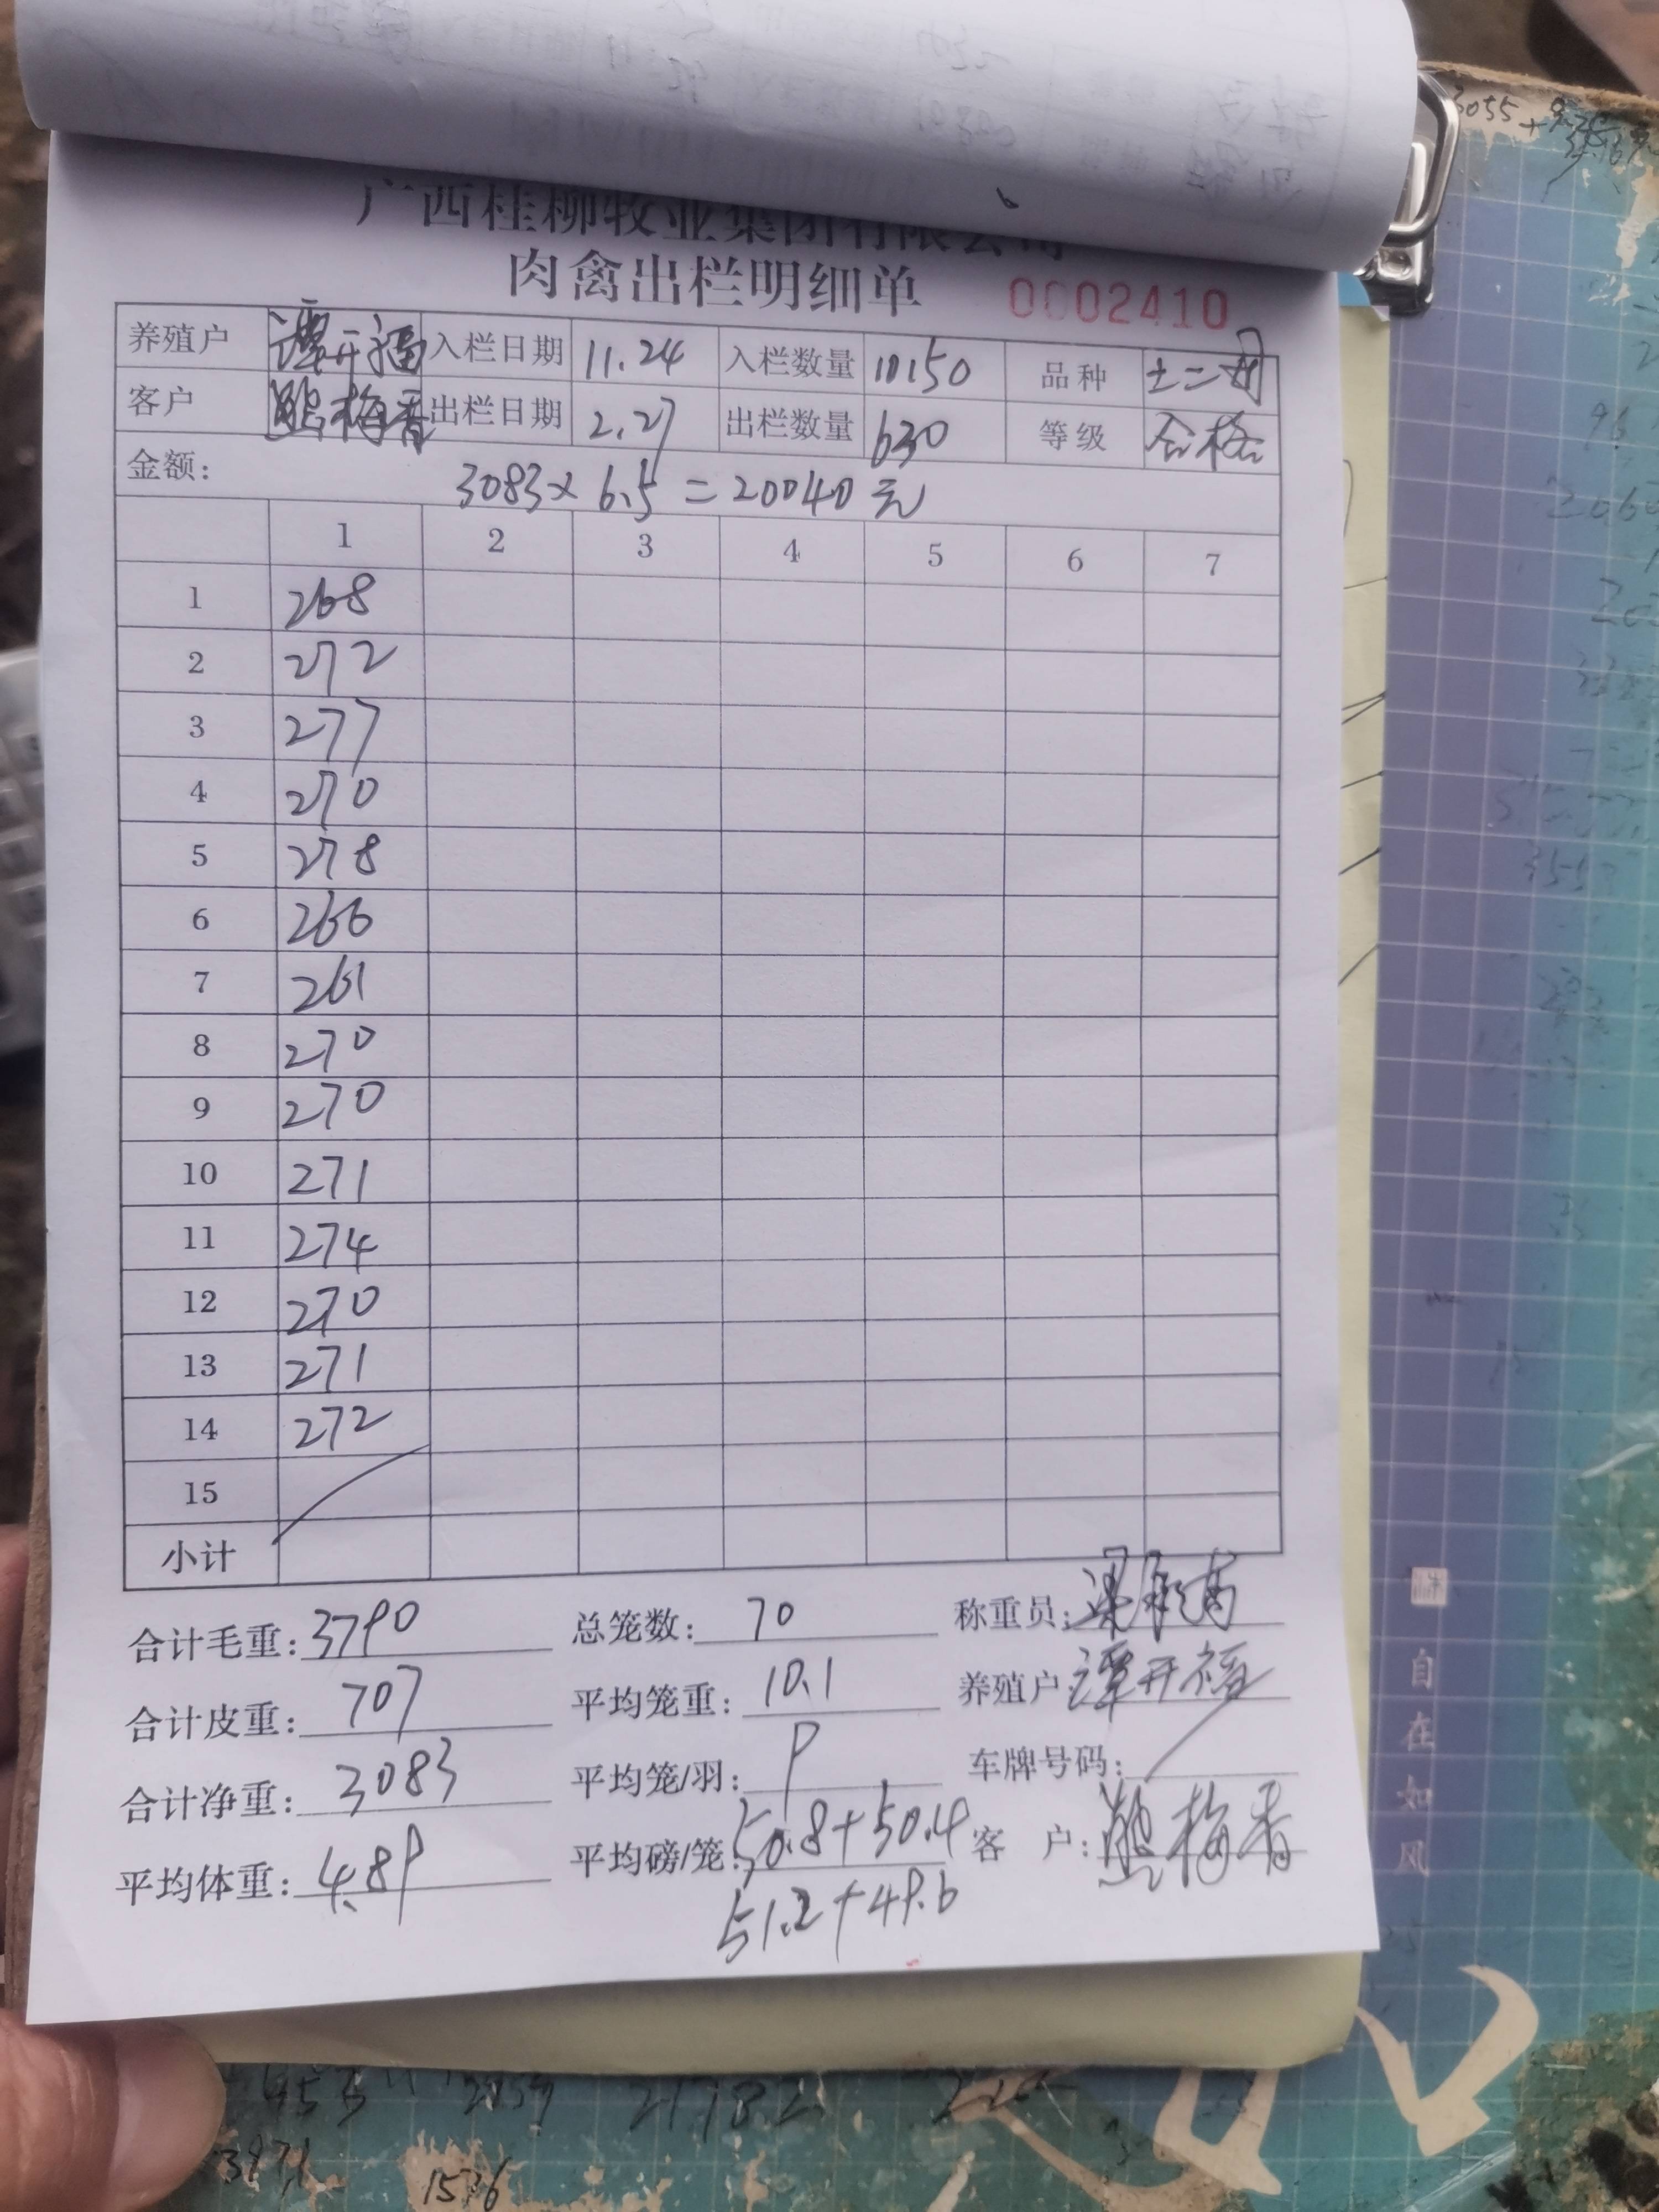 广西桂柳牧业集团有限公司
肉禽出栏明细单 0002410
养殖户 谭开福 入栏日期 11.24 入栏数量 10150 品种 土二母
客户 熊梅香 出栏日期 2.27 出栏数量 630 等级 合格
金额: 3083×6.5=20040元
1 2 3 4 5 6 7
1 268
2 272
3 277
4 270
5 278
6 266
7 261
8 270
9 270
10 271
11 274
12 270
13 271
14 272
15
小计
合计毛重: 3790 总笼数: 70 称重员:
合计皮重: 707 平均笼重: 10.1 养殖户: 谭开福
合计净重: 3083 平均笼/羽: 9 车牌号码:
平均体重: 4.89 平均磅/笼: 50.8+50.4 客户: 熊梅香
51.2+49.6
自在如风
3055+
1536